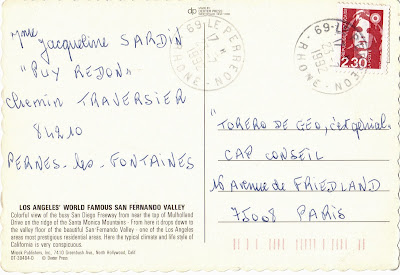 dp
DEXTER PRESS
Mme Jacqueline SARDIN
"PUY REDON"
Chemin TRAVERSIER
84210
PERNES-les-FONTAINES
69-LE PERREON
RHONE
1992
2,30
"TORERO DE GEO, c'est génial"
CAP CONSEIL
16 Avenue de FRIEDLAND
75008 PARIS
LOS ANGELES' WORLD FAMOUS SAN FERNANDO VALLEY
Colorful view of the busy San Diego Freeway from near the top of Mulholland
Drive on the ridge of the Santa Monica Mountains - From here it drops down to
the valley floor of the beautiful San Fernando Valley - one of the Los Angeles
areas most prestigious residential areas. Here the typical climate and life style of
California is very conspicuous.
Mitock Publishers, Inc., 7410 Greenbush Ave., North Hollywood, Calif.
© Dexter Press